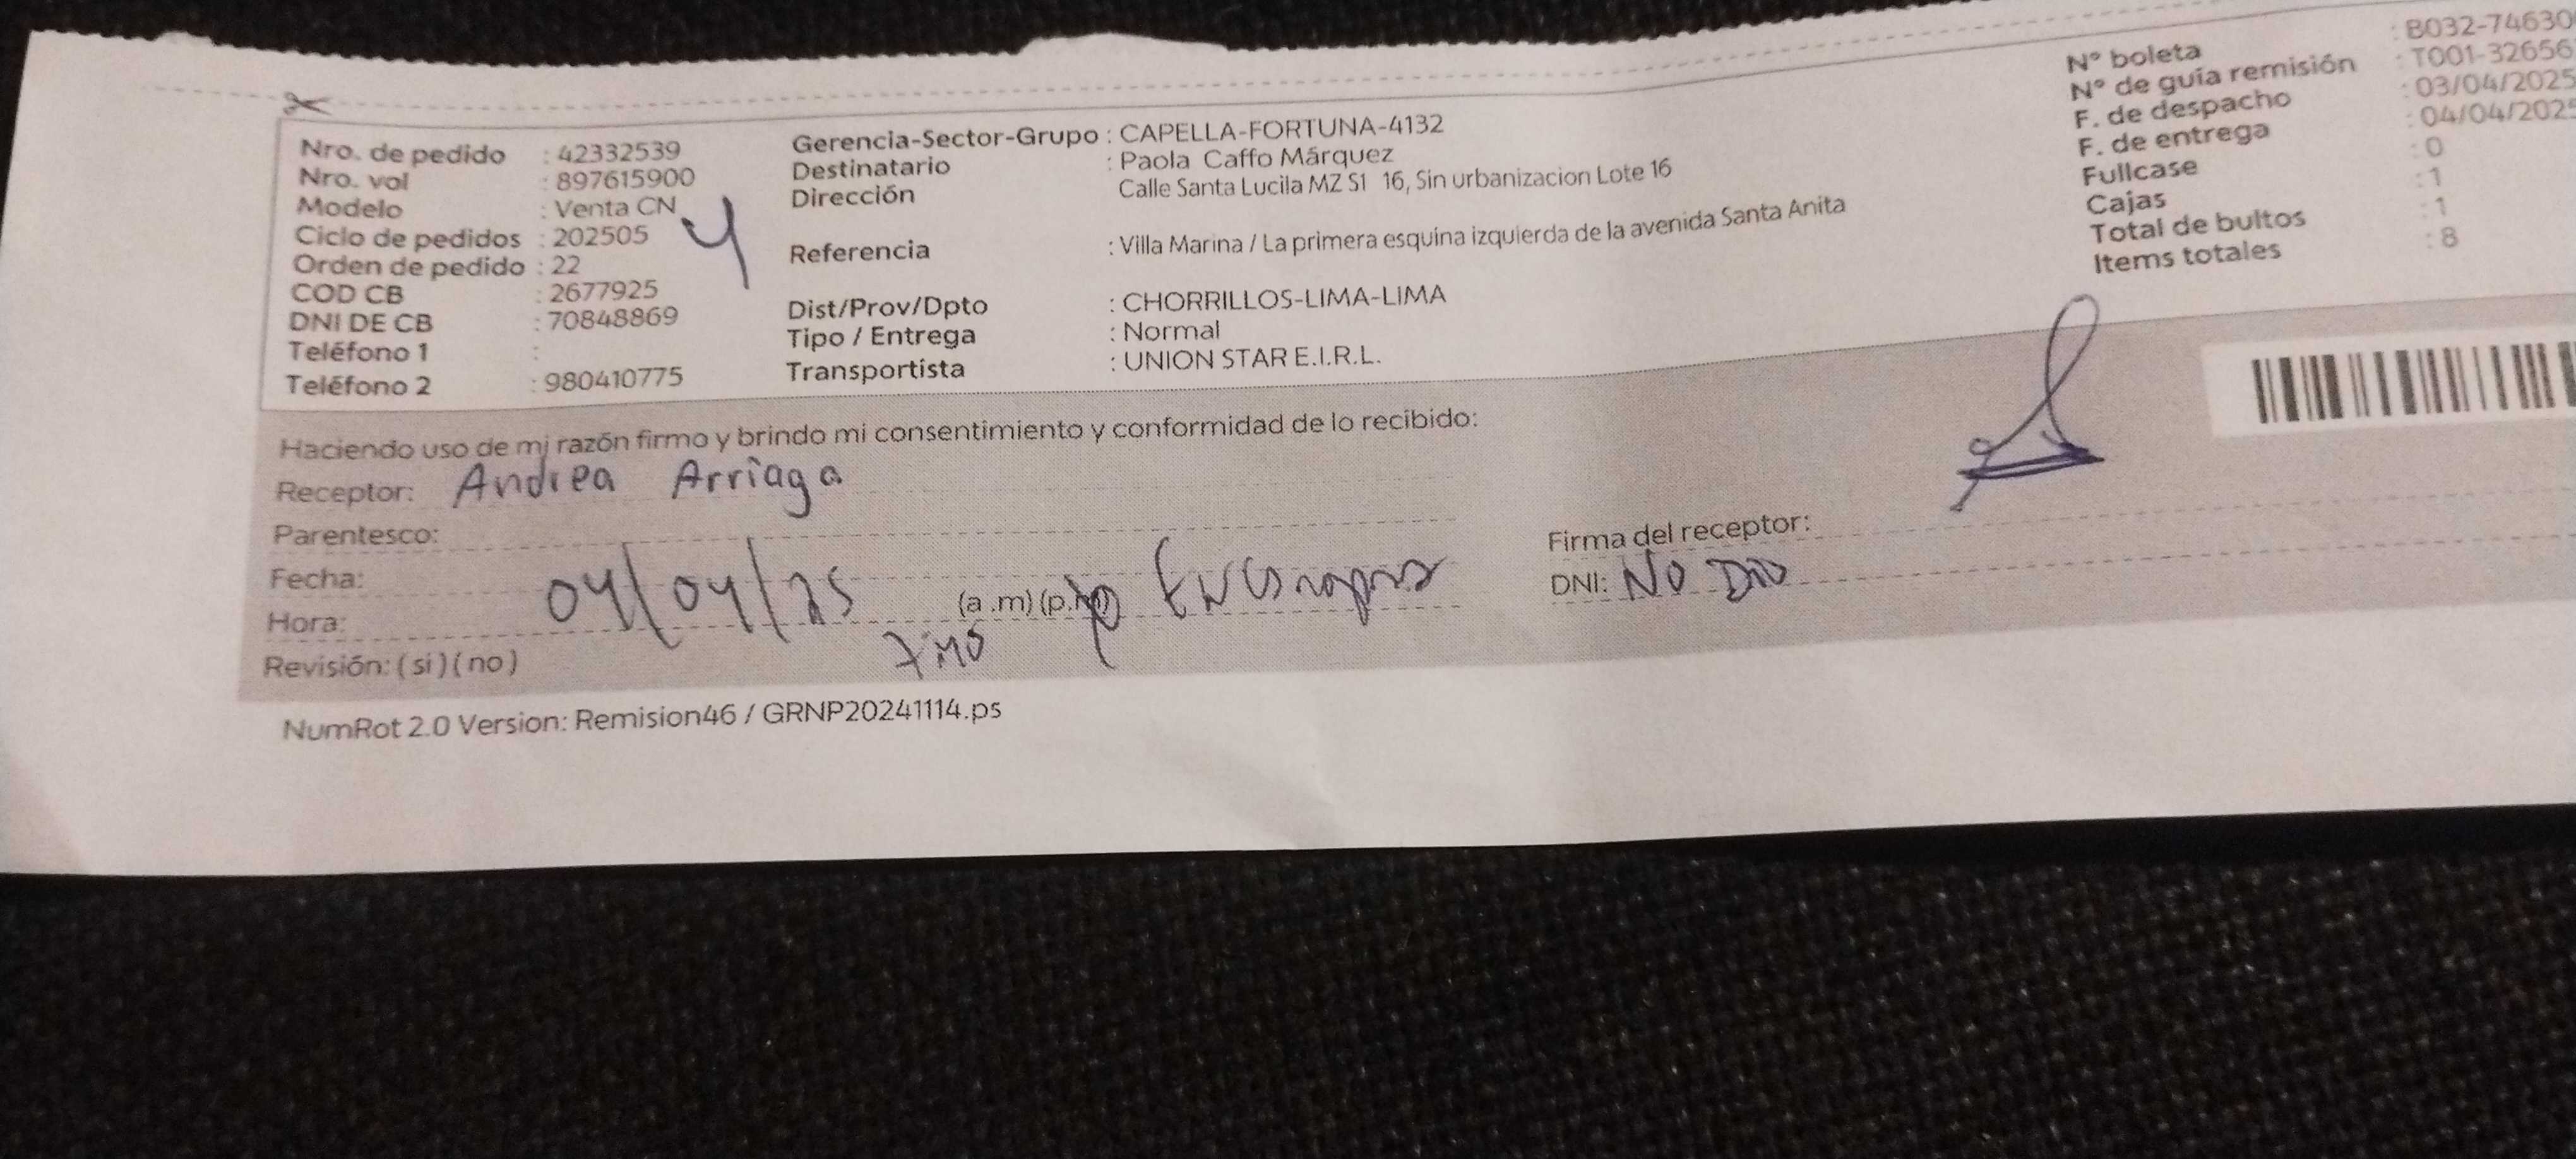 Nro. de pedido : 42332539
Nro. vol : 897615900
Modelo : Venta CN
Ciclo de pedidos : 202505
Orden de pedido : 22
COD CB : 2677925
DNI DE CB : 70848869
Teléfono 1 :
Teléfono 2 : 980410775
4
Gerencia-Sector-Grupo : CAPELLA-FORTUNA-4132
Destinatario : Paola Caffo Márquez
Dirección Calle Santa Lucila MZ S1 16, Sin urbanizacion Lote 16
Referencia : Villa Marina / La primera esquina izquierda de la avenida Santa Anita
Dist/Prov/Dpto : CHORRILLOS-LIMA-LIMA
Tipo / Entrega : Normal
Transportista : UNION STAR E.I.R.L.
N° boleta : B032-74630
N° de guía remisión : T001-32656
F. de despacho : 03/04/2025
F. de entrega : 04/04/2025
Fullcase : 0
Cajas : 1
Total de bultos : 1
Items totales : 8
Haciendo uso de mi razón firmo y brindo mi consentimiento y conformidad de lo recibido:
Receptor: Andrea Arriaga
Parentesco:
Fecha: 04/04/25
Hora: (a .m) (p.m)
Revisión: ( si ) ( no )
Firma del receptor:
DNI: NO DIO
NumRot 2.0 Version: Remision46 / GRNP20241114.ps